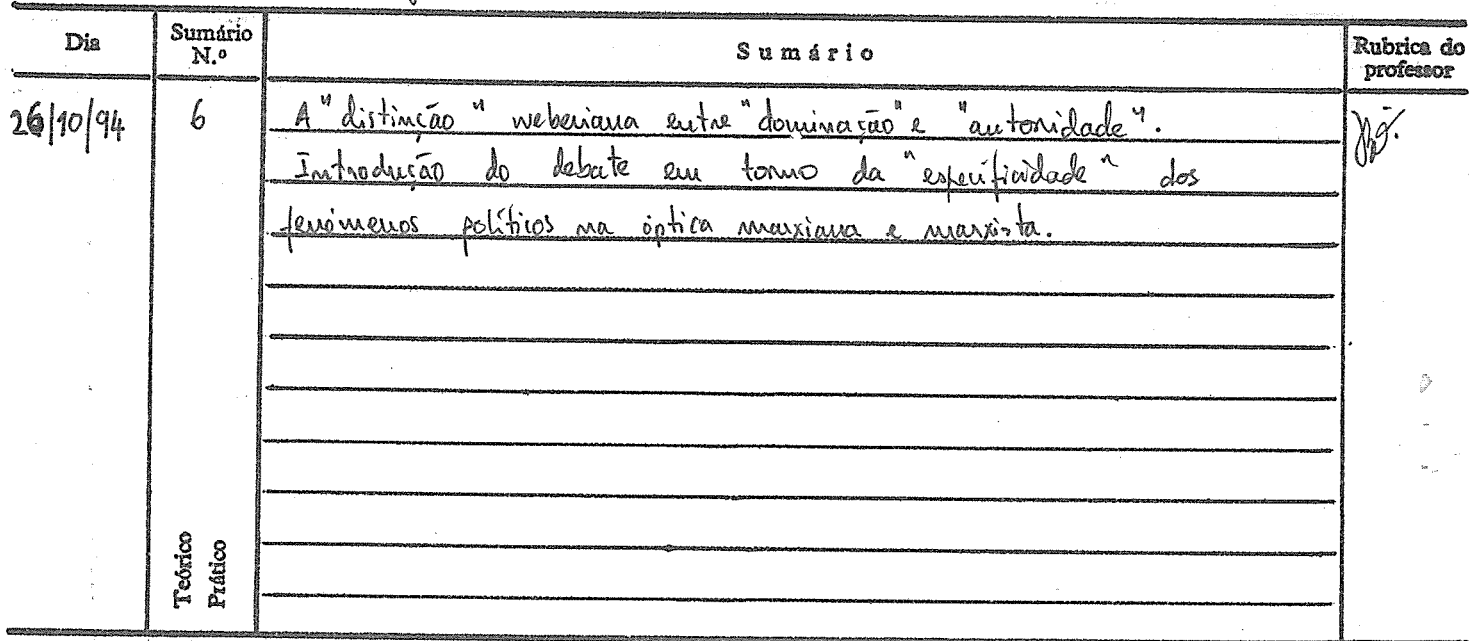 Dia Sumário N.º Sumário Rubrica do professor
26/10/94 6 A "distinção" weberiana entre "dominação" e "autoridade".
Introdução do debate em torno da "especificidade" dos
fenómenos políticos na óptica marxiana e marxista.
Teórico
Prático